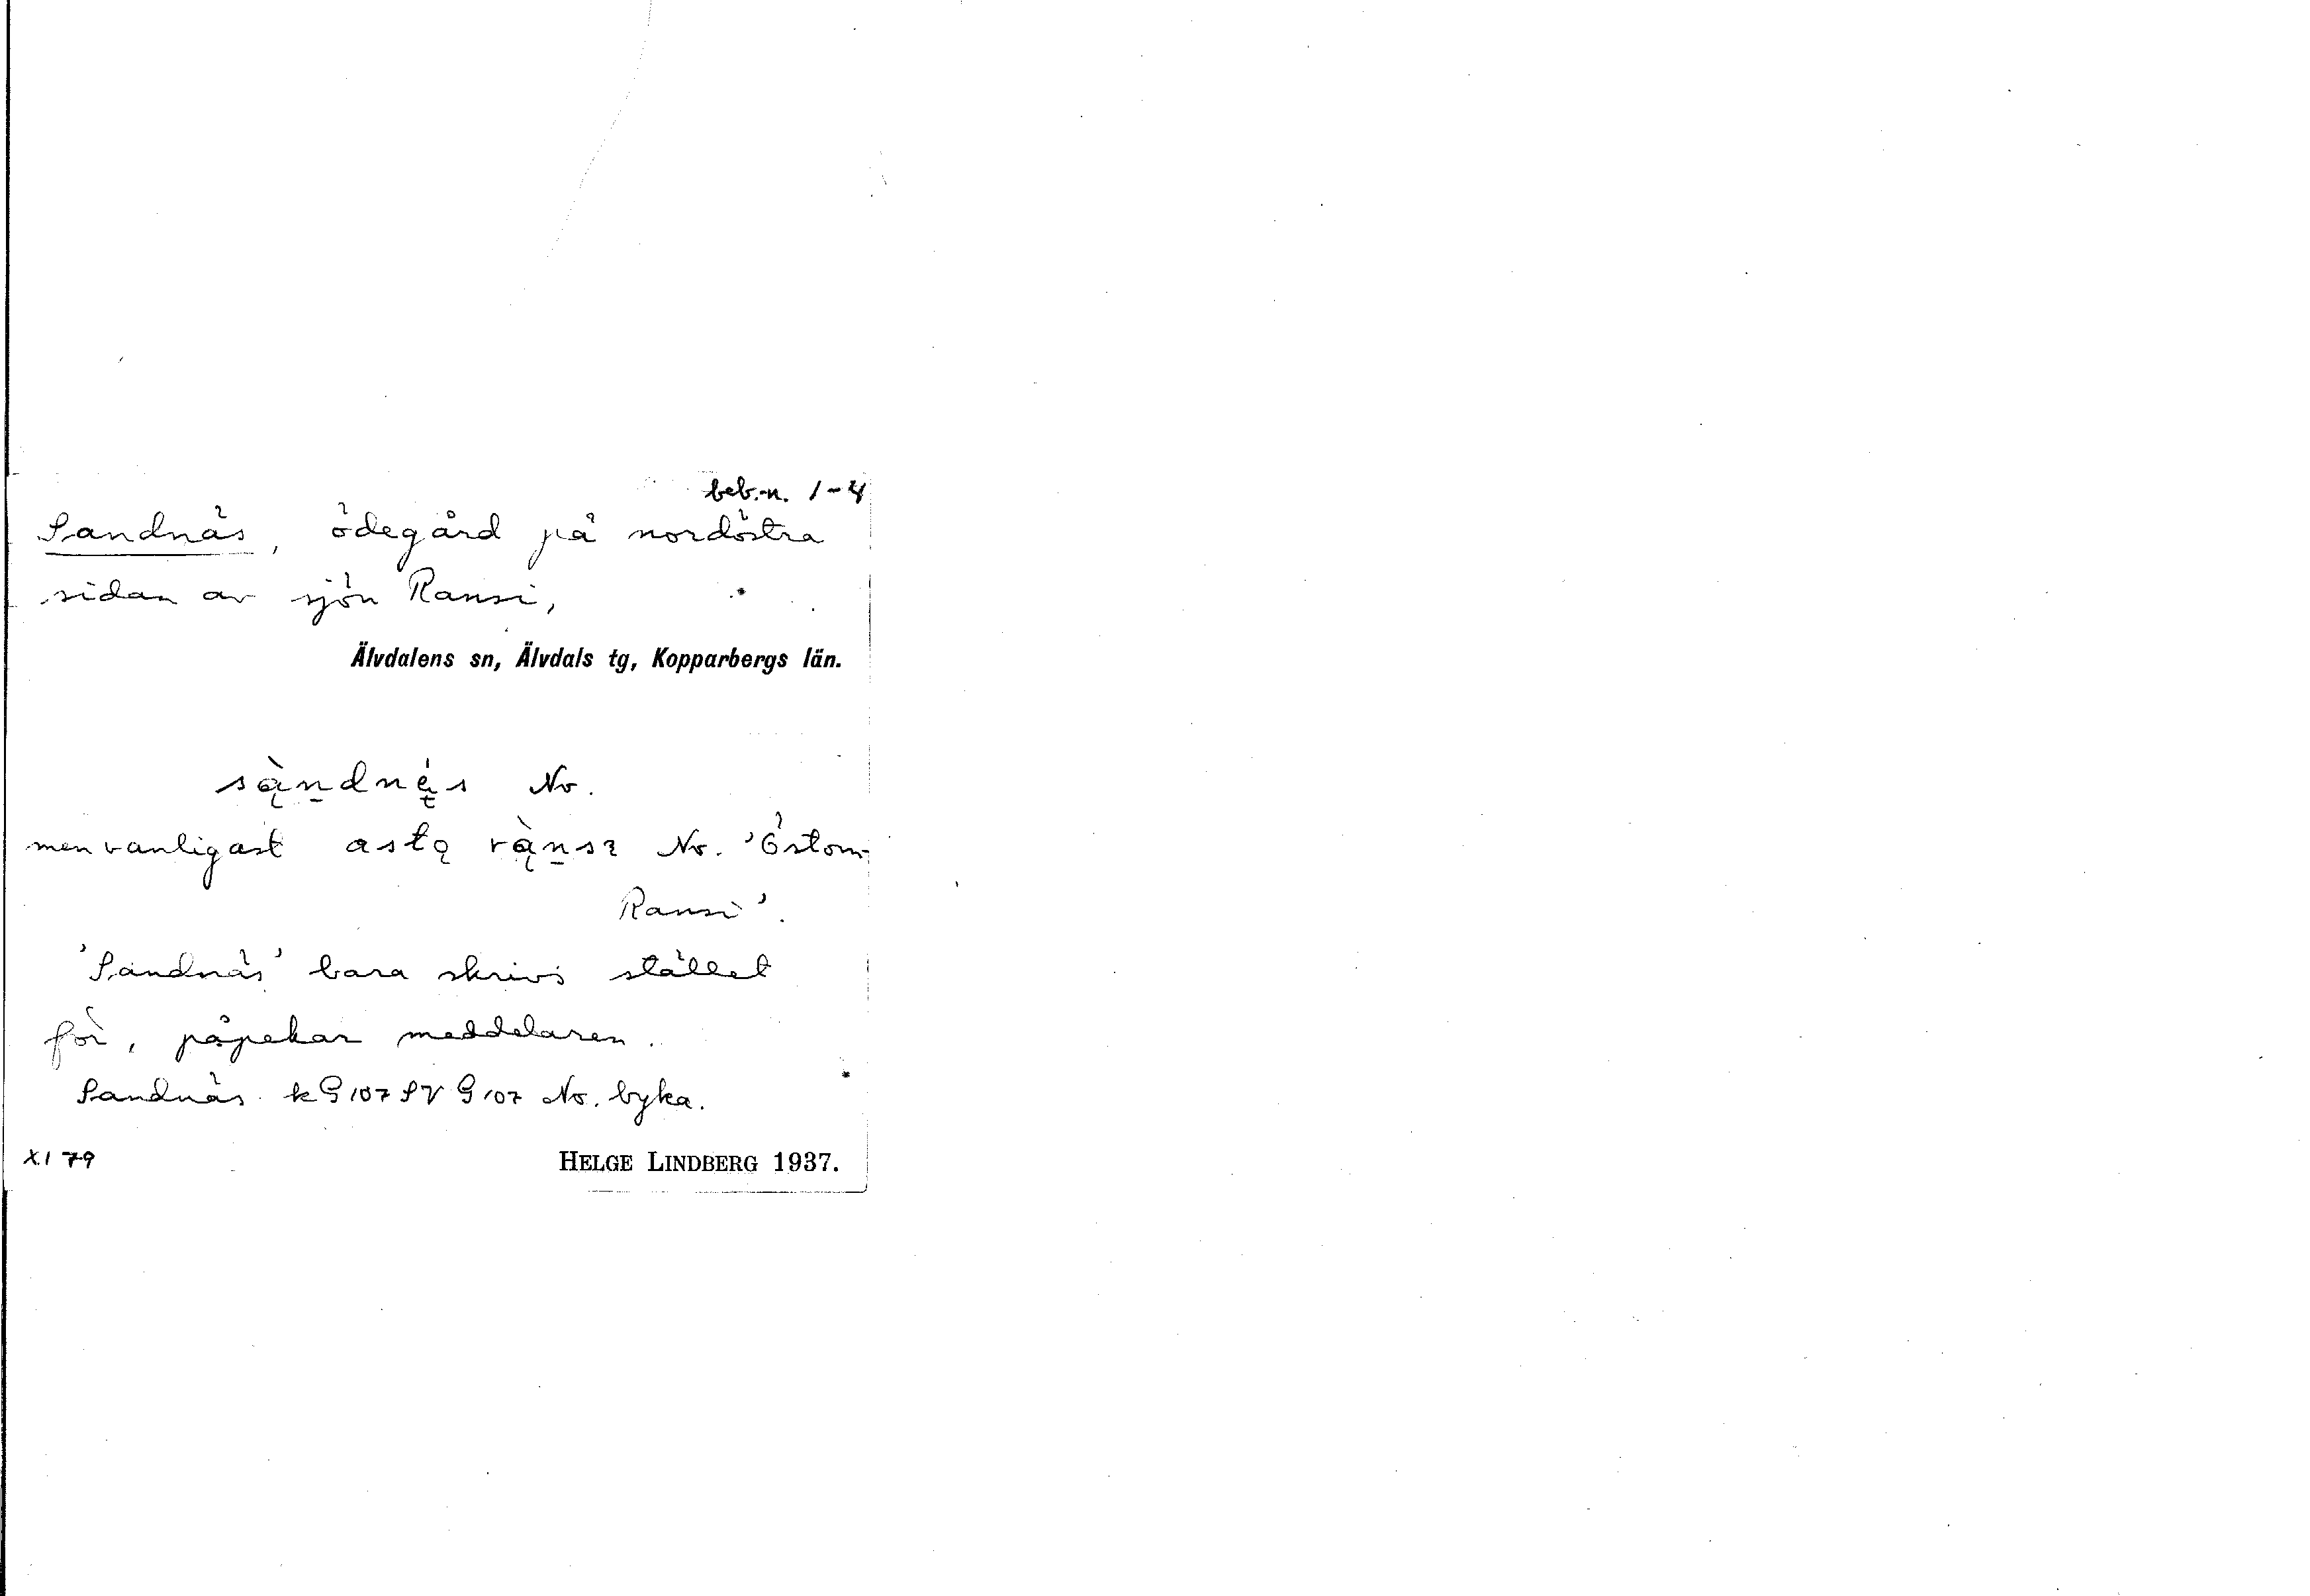 beb.-n. 1-4
Sandnäs, ödegård på nordöstra
sidan av sjön Ransi,
Älvdalens sn, Älvdals tg, Kopparbergs län.
sàndnę́s No.
men vanligast astǫ rànsı No. 'Östom-
Ransi'.
'Sandnäs' bara skrivs stället
för, påpekar meddelaren.
Sandnäs kG107 SV G107 No. byka.
XI 79
HELGE LINDBERG 1937.